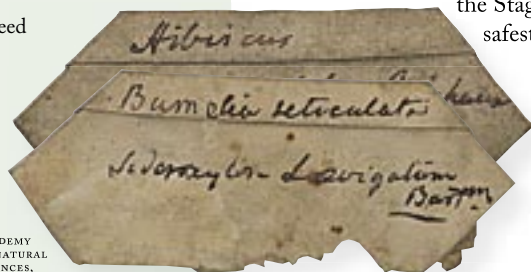 eed
the Stag
safest
Hibiscus
Bumelia reticulata
Sideroxylon Lævigatum
Bartm
DEMY
NATURAL
NCES,